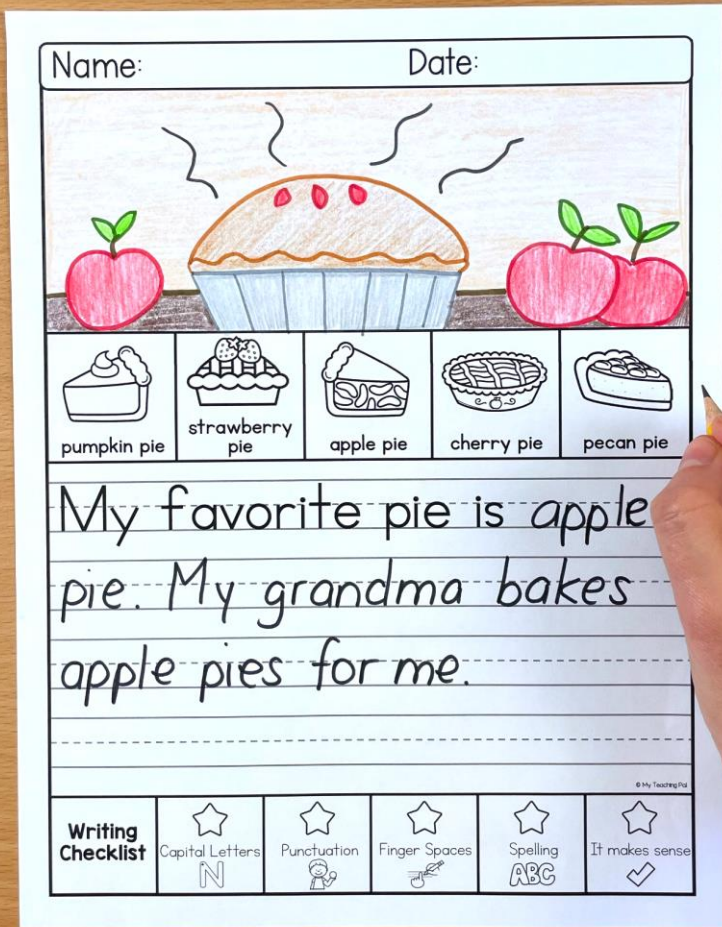 Name: Date:
pumpkin pie
strawberry
pie
apple pie
cherry pie
pecan pie
My favorite pie is apple
pie. My grandma bakes
apple pies for me.
© My Teaching Pal
Writing
Checklist
Capital Letters
N
Punctuation
Finger Spaces
Spelling
ABC
It makes sense